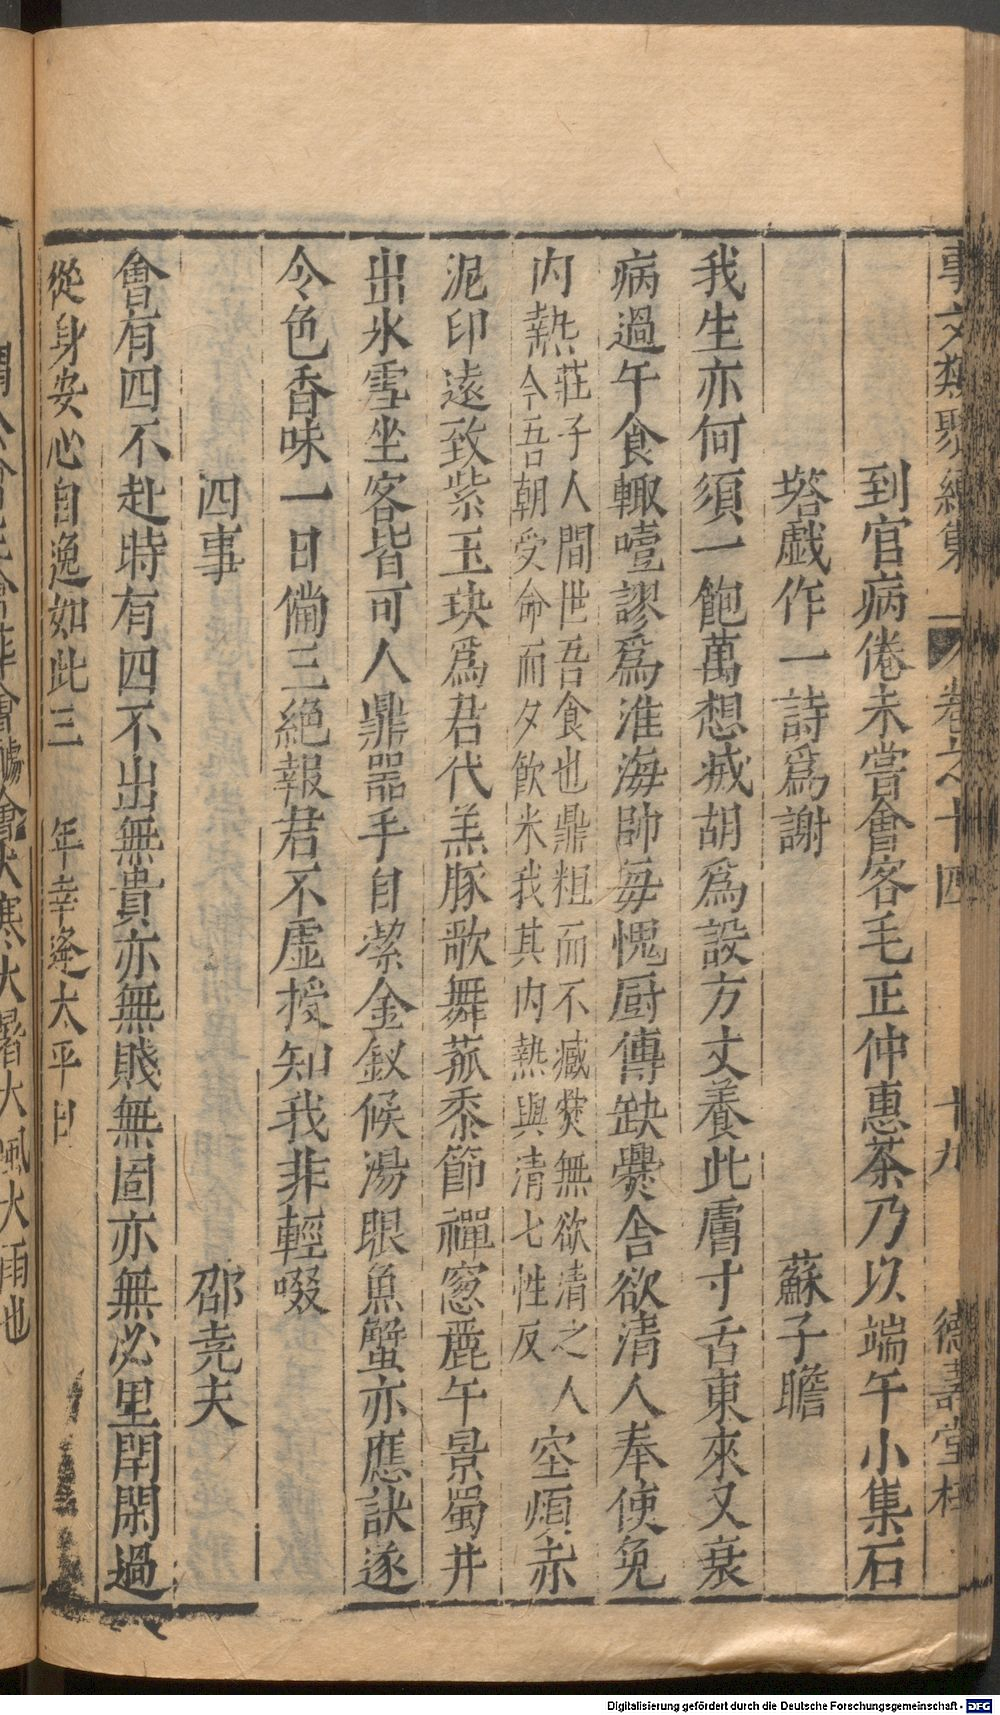 事文類聚續集
卷之十四
十九
德壽堂梓
到官病倦未嘗會客毛正仲惠茶乃以端午小集石
塔戯作一詩爲謝
蘇子瞻
我生亦何須一飽萬想滅胡爲設方丈養此膚寸舌東來又衰
病過午食輙噎謬爲淮海帥每愧厨傳缺爨舎欲清人奉使免
内熱
莊子人間世吾食也鼎粗而不臧爨無欲清之人
今吾朝受命而夕飲氷我其内熱與清七性反
空煩赤
泥印遠致紫玉玦爲君代羔豚歌舞菰黍節禪窻麗午景蜀井
出氷雪坐客皆可人鼎噐手自㓗金釵候湯眼魚蟹亦應訣遂
令色香味一日備三絶報君不虚授知我非輕啜
四事
邵堯夫
會有四不赴時有四不出無貴亦無賤無固亦無必里閈閑過
從身安心自逸如此三
年幸逢太平日
會大寒大暑大風大雨也
Digitalisierung gefördert durch die Deutsche Forschungsgemeinschaft - DFG